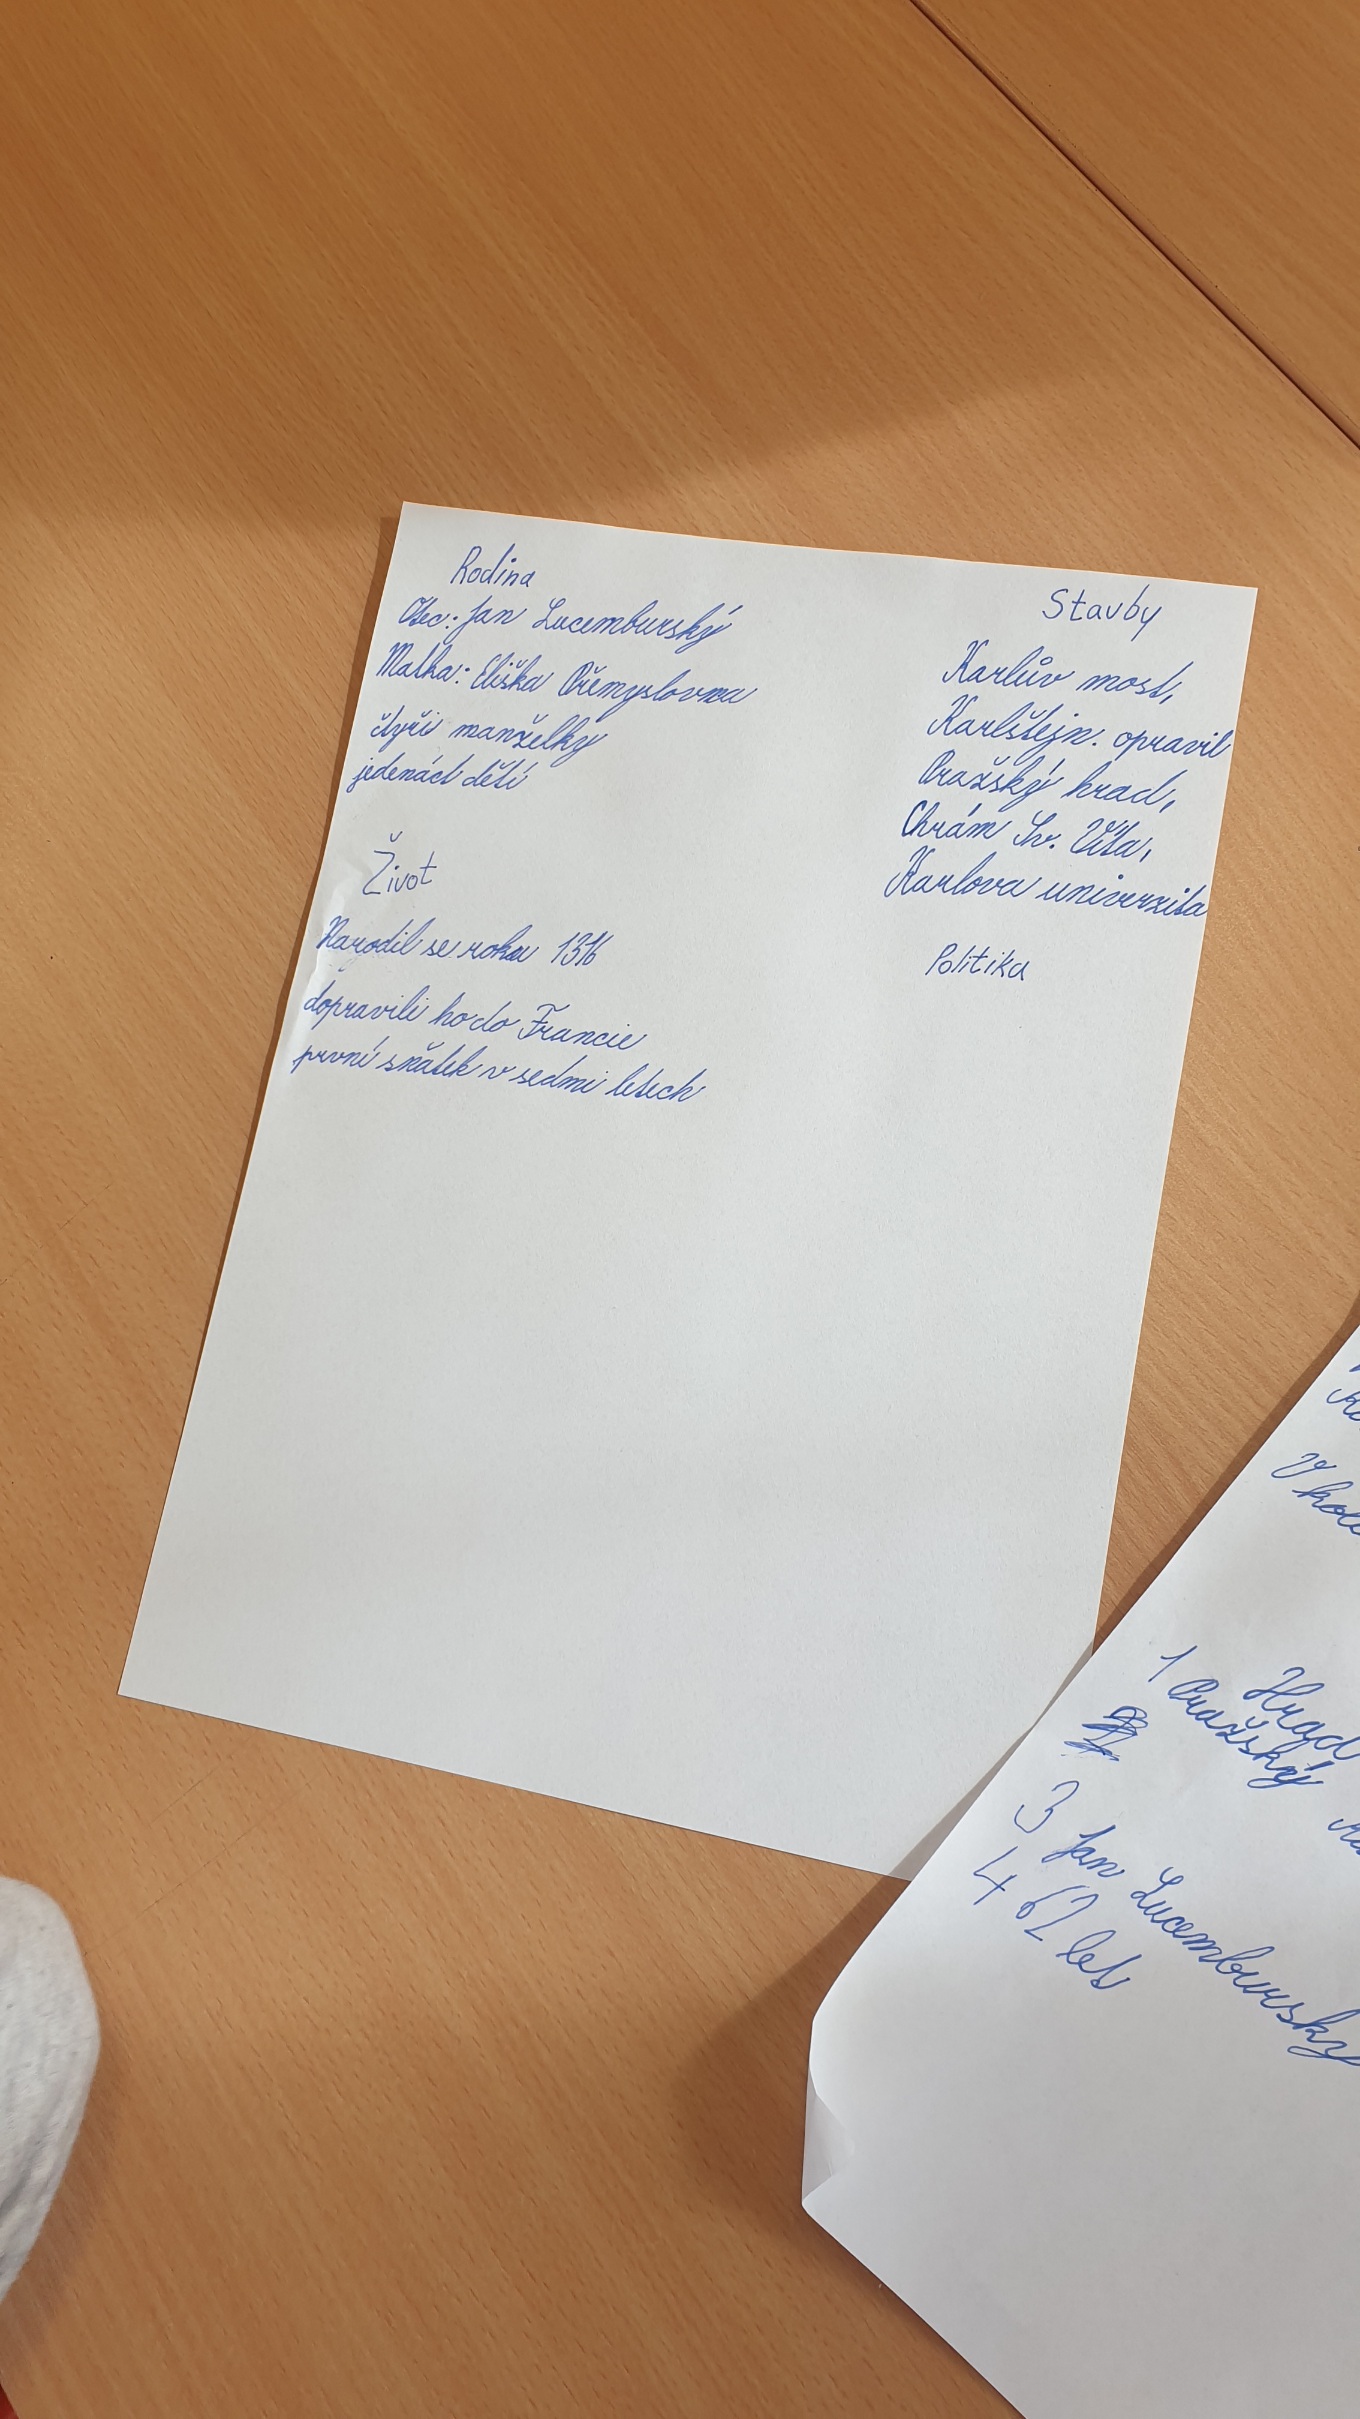 Rodina
Otec: Jan Lucemburský
Matka: Eliška Přemyslovna
čtyři manželky
jedenáct dětí
Život
Narodil se roku 1316
dopravili ho do Francie
první sňatek v sedmi letech
Stavby
Karlův most,
Karlštejn. opravil
Pražský hrad,
Chrám Sv. Víta,
Karlova univerzita
Politika
V
1 Hrad
Pražský
3 Jan Lucembursky
4 62 let